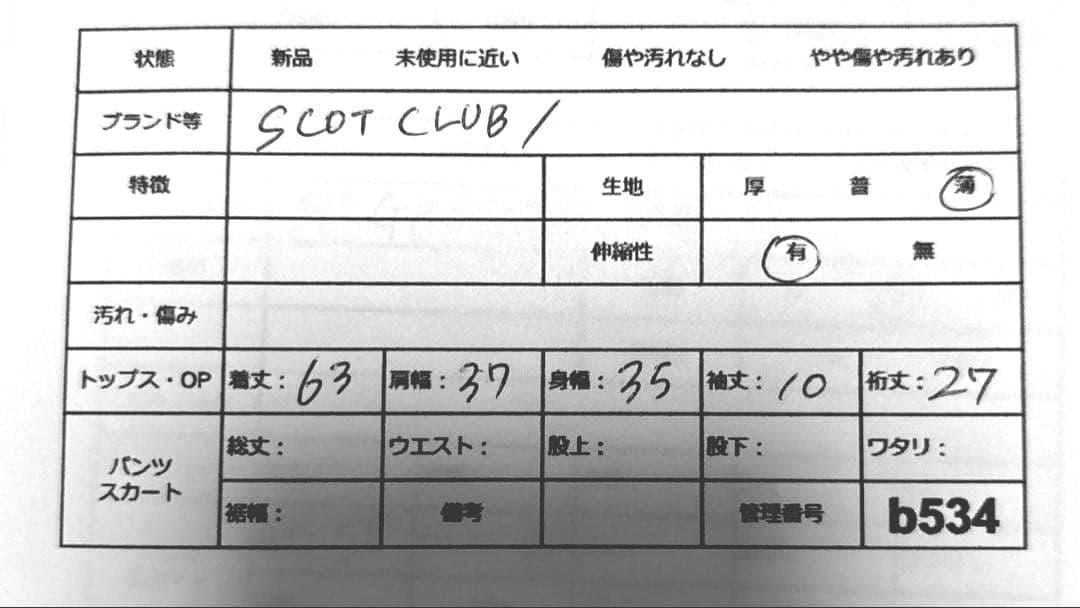 状態 新品 未使用に近い 傷や汚れなし やや傷や汚れあり
ブランド等 SCOT CLUB /
特徴 生地 厚 普 薄
伸縮性 有 無
汚れ・傷み
トップス・OP 着丈：63 肩幅：37 身幅：35 袖丈：10 裄丈：27
パンツ
スカート
総丈： ウエスト： 股上： 股下： ワタリ：
裾幅： 備考 管理番号 b534